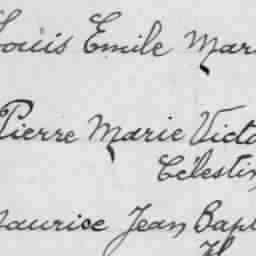 Louis Emile Mari
Pierre Marie Victo
Célestin
Maurice Jean Bapt